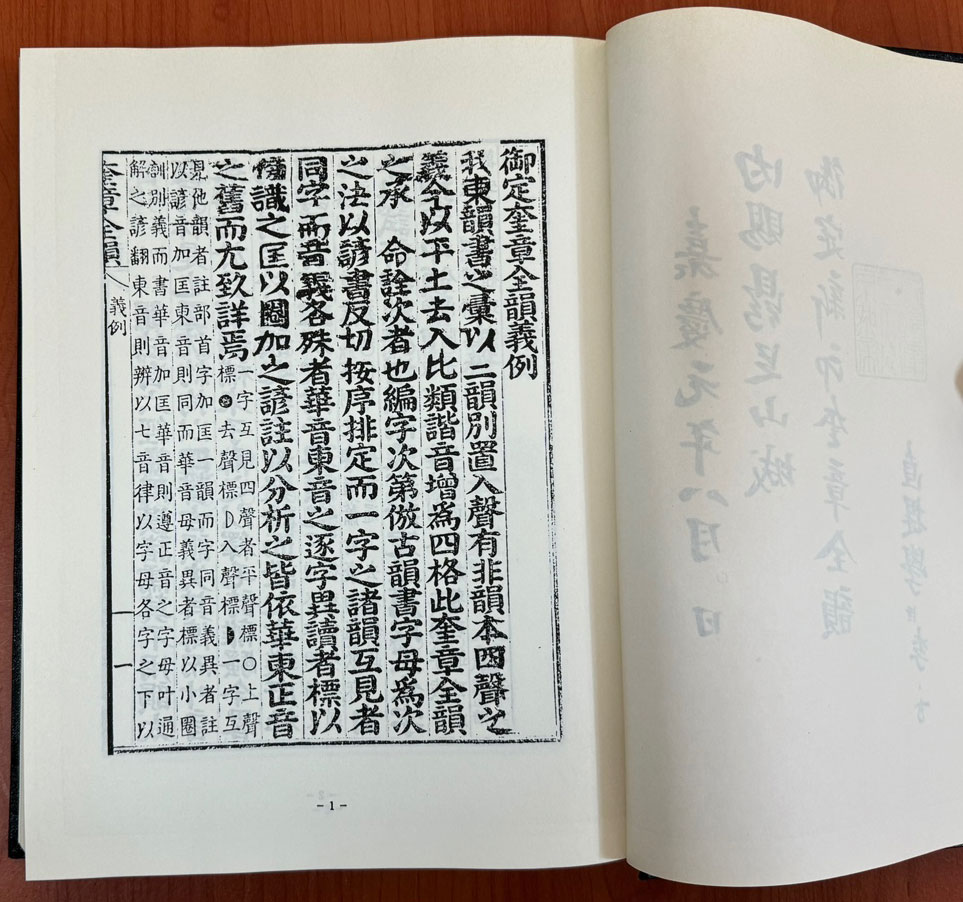 御定奎章全韻義例
我東韻書之彙以二韻別置入聲有非韻本四聲之
義今以平上去入比類諧音增爲四格此奎章全韻
之承 命詮次者也編字次第倣古韻書字母爲次
之法以諺書反切按序排定而一字之諸韻互見者
同字而音義各殊者華音東音之逐字異讀者標以
識之匡以圈加之諺註以分析之皆依華東正音
之舊而尤致詳焉
一字互見四聲者平聲標○上聲
標◉去聲標D入聲標◗一字互
見他韻者註部首字加匡一韻而字同音義異者註
以諺音加匡東音則同而華音母義異者標以小圈
訓別義而書華音加匡華音則遵正音之字母叶通
解之諺翻東音則辨以七音律以字母各字之下以
奎章全韻 義例 一
- 1 -